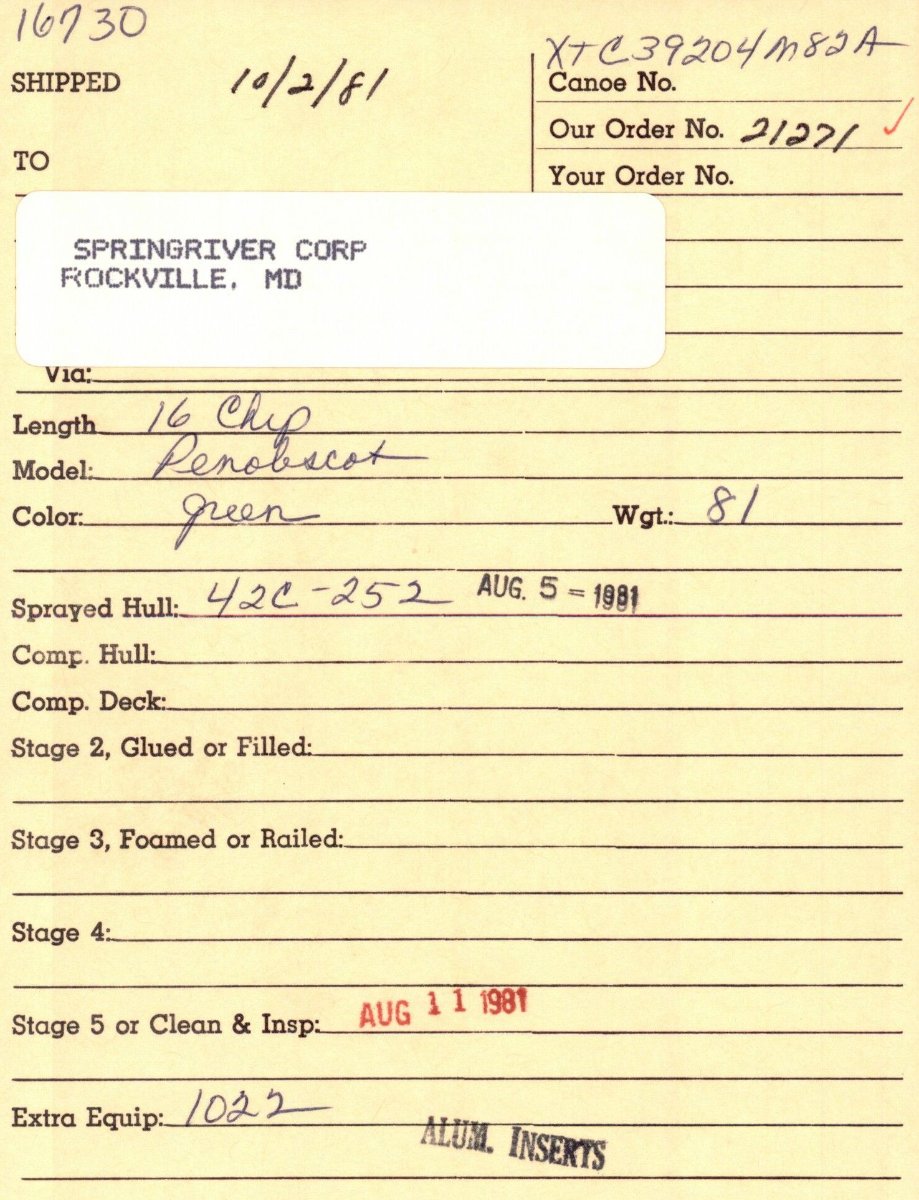 16730
XTC39204M82A
SHIPPED 10/2/81 Canoe No.
Our Order No. 21271
TO
Your Order No.
SPRINGRIVER CORP
ROCKVILLE, MD
Via:
Length 16 Chip
Model: Penobscot
Color: green Wgt.: 81
Sprayed Hull: 42C-252 AUG. 5 - 1981
Comp. Hull:
Comp. Deck:
Stage 2, Glued or Filled:
Stage 3, Foamed or Railed:
Stage 4:
Stage 5 or Clean & Insp: AUG 11 1981
Extra Equip: 1022
ALUM. INSERTS